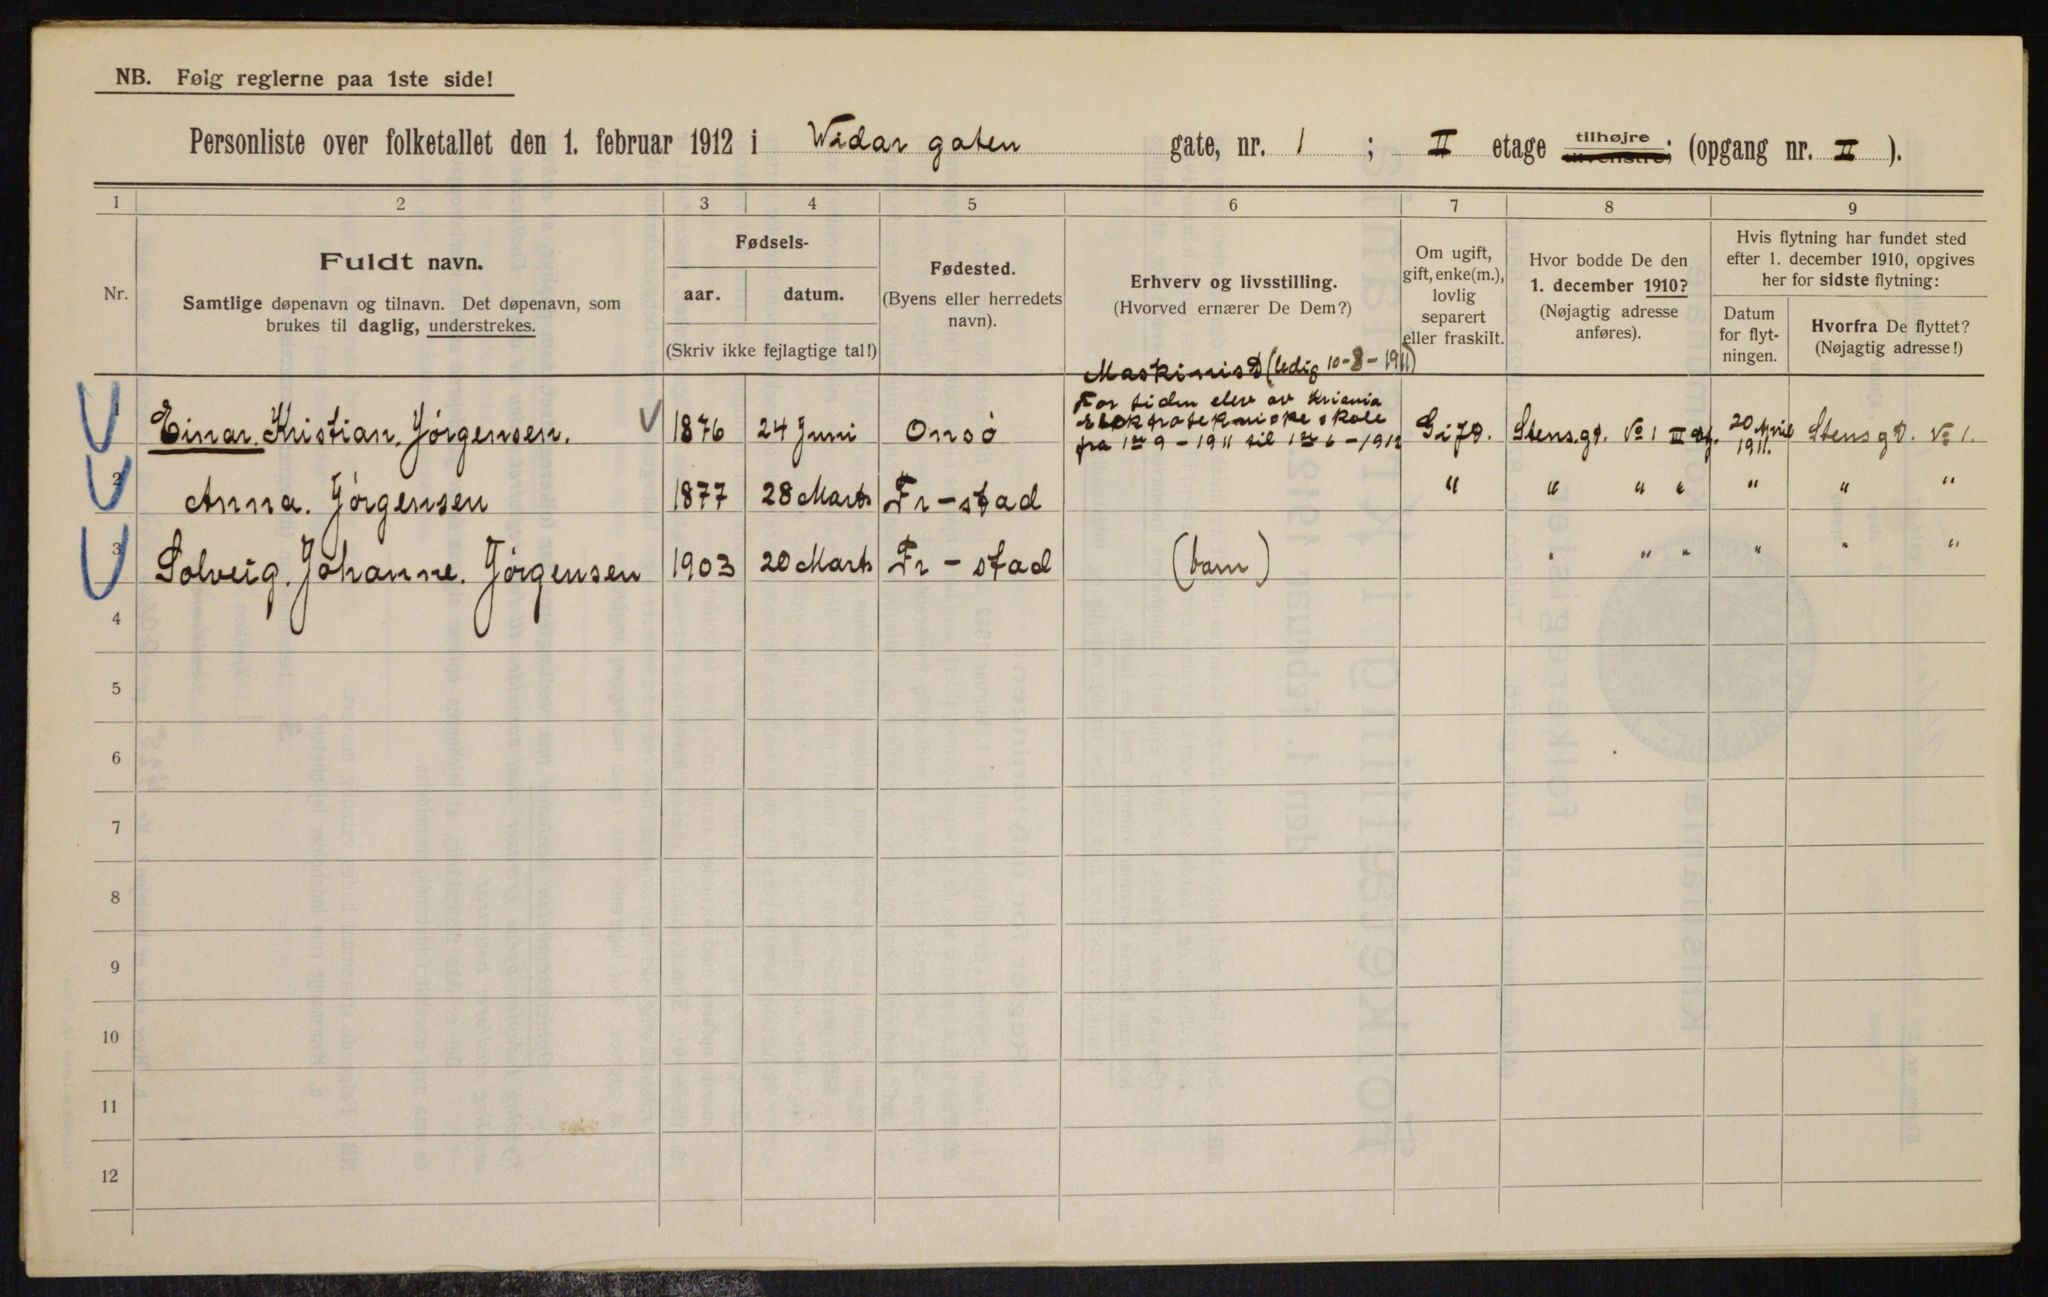 NB. Følg reglerne paa 1ste side!
Personliste over folketallet den 1. februar 1912 i Widar gaten gate, nr. 1 ; II etage tilhøjre tilvenstre; (opgang nr. II ).
1 2 3 4 5 6 7 8 9
Nr.
Fuldt navn.
Samtlige døpenavn og tilnavn. Det døpenavn, som
brukes til daglig, understrekes.
Fødsels-
aar. datum.
(Skriv ikke fejlagtige tal!)
Fødested.
(Byens eller herredets
navn).
Erhverv og livsstilling.
(Hvorved ernærer De Dem?)
Om ugift,
gift, enke(m.),
lovlig
separert
eller fraskilt.
Hvor bodde De den
1. december 1910?
(Nøjagtig adresse
anføres).
Hvis flytning har fundet sted
efter 1. december 1910, opgives
her for sidste flytning:
Datum
for flyt-
ningen.
Hvorfra De flyttet?
(Nøjagtig adresse!)
Maskinist (ledig 10-8-1911)
For tiden elev av Kriania
Elektrotekniske skole
fra 1ste 9-1911 til 1ste 6-1912
1 Einar. Kristian. Jörgensen. 1876 24 Juni Onsö Gift. Stens.gt. No 1 II etg. 20 April 1911. Stens gt. No 1.
2 Anna. Jörgensen 1877 28 Marts Fr-stad " " " " " " "
3 Solveig. Johanne. Jörgensen 1903 20 Marts Fr-stad (barn) " " " " " "
4
5
6
7
8
9
10
11
12